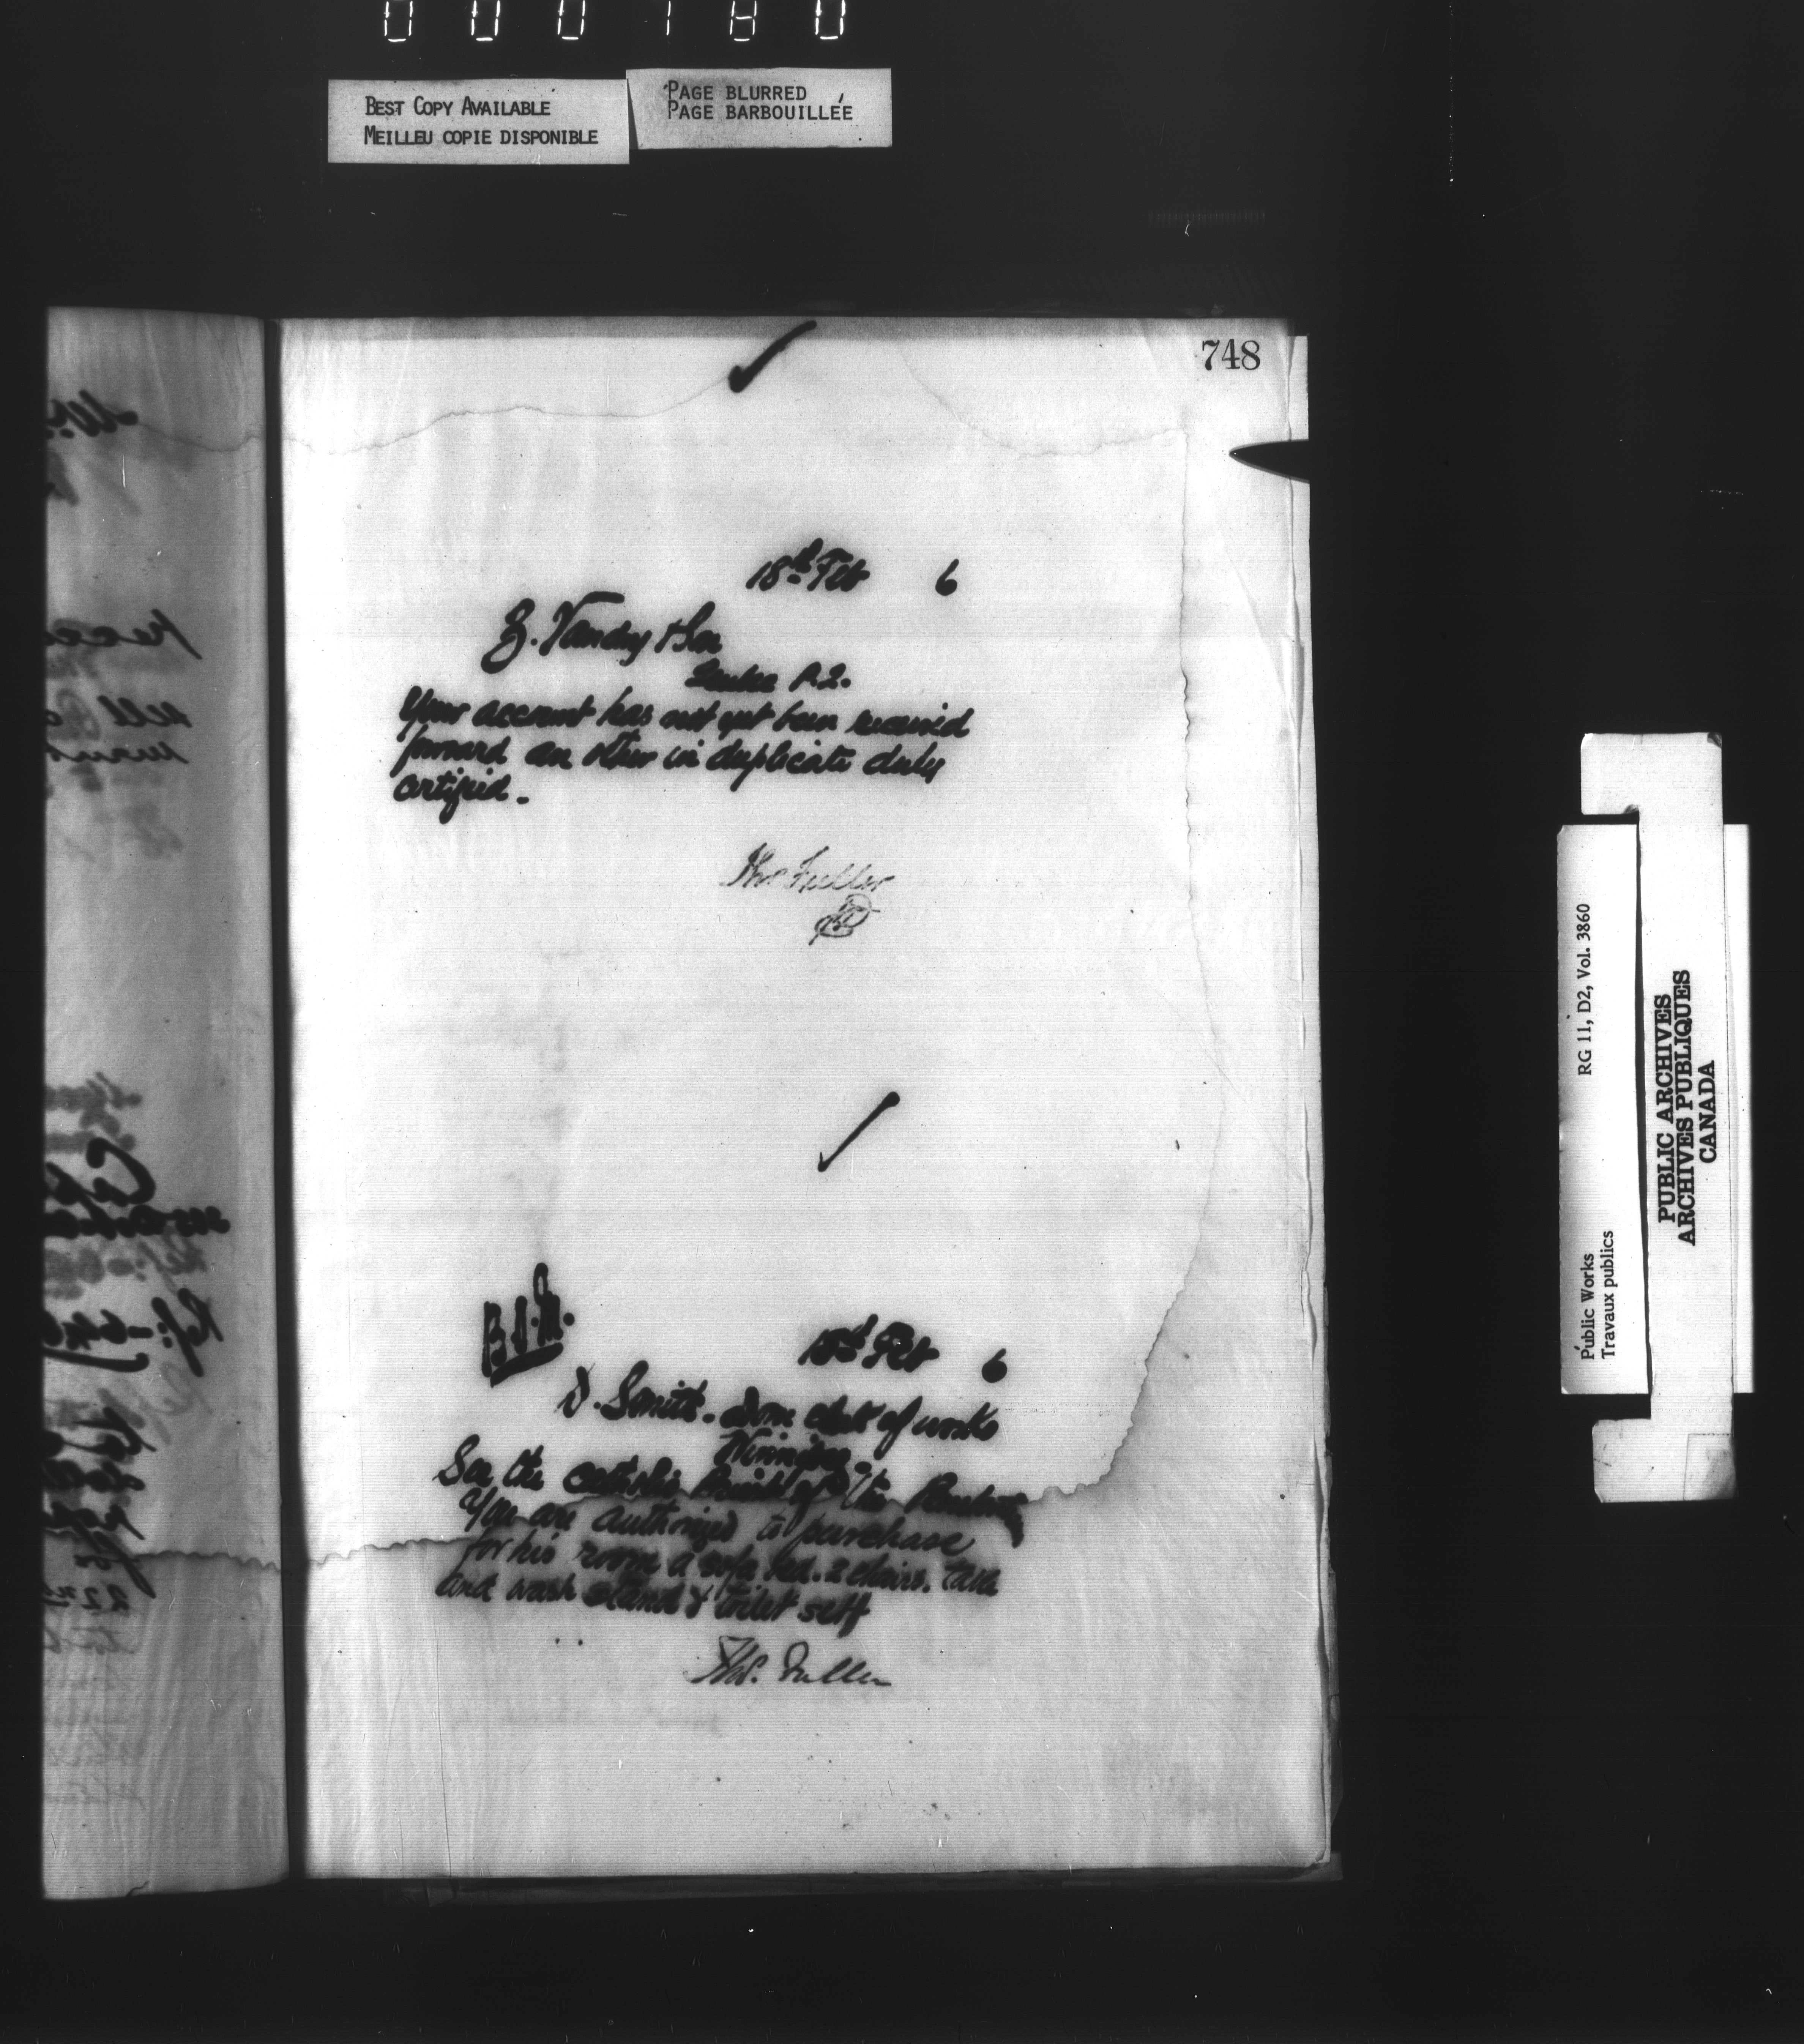 000780
BEST COPY AVAILABLE
MEILLEU COPIE DISPONIBLE
PAGE BLURRED
PAGE BARBOUILLÉE
748
18th Feb 6
Z. Vandry & Son
Quebec P.Q.
Your account has not yet been received
forward an other in duplicate duly
certified.
Thos Fuller
18th Feb 6
D. Smith. Dom clerk of works
Winnipeg.
See the catholic Priest of the
You are authorized to purchase
for his room a sofa bed. 2 chairs. table
and wash stand & toilet sett
Thos. Fuller
RG 11, D2, Vol. 3860
Public Works
Travaux publics
PUBLIC ARCHIVES
ARCHIVES PUBLIQUES
CANADA